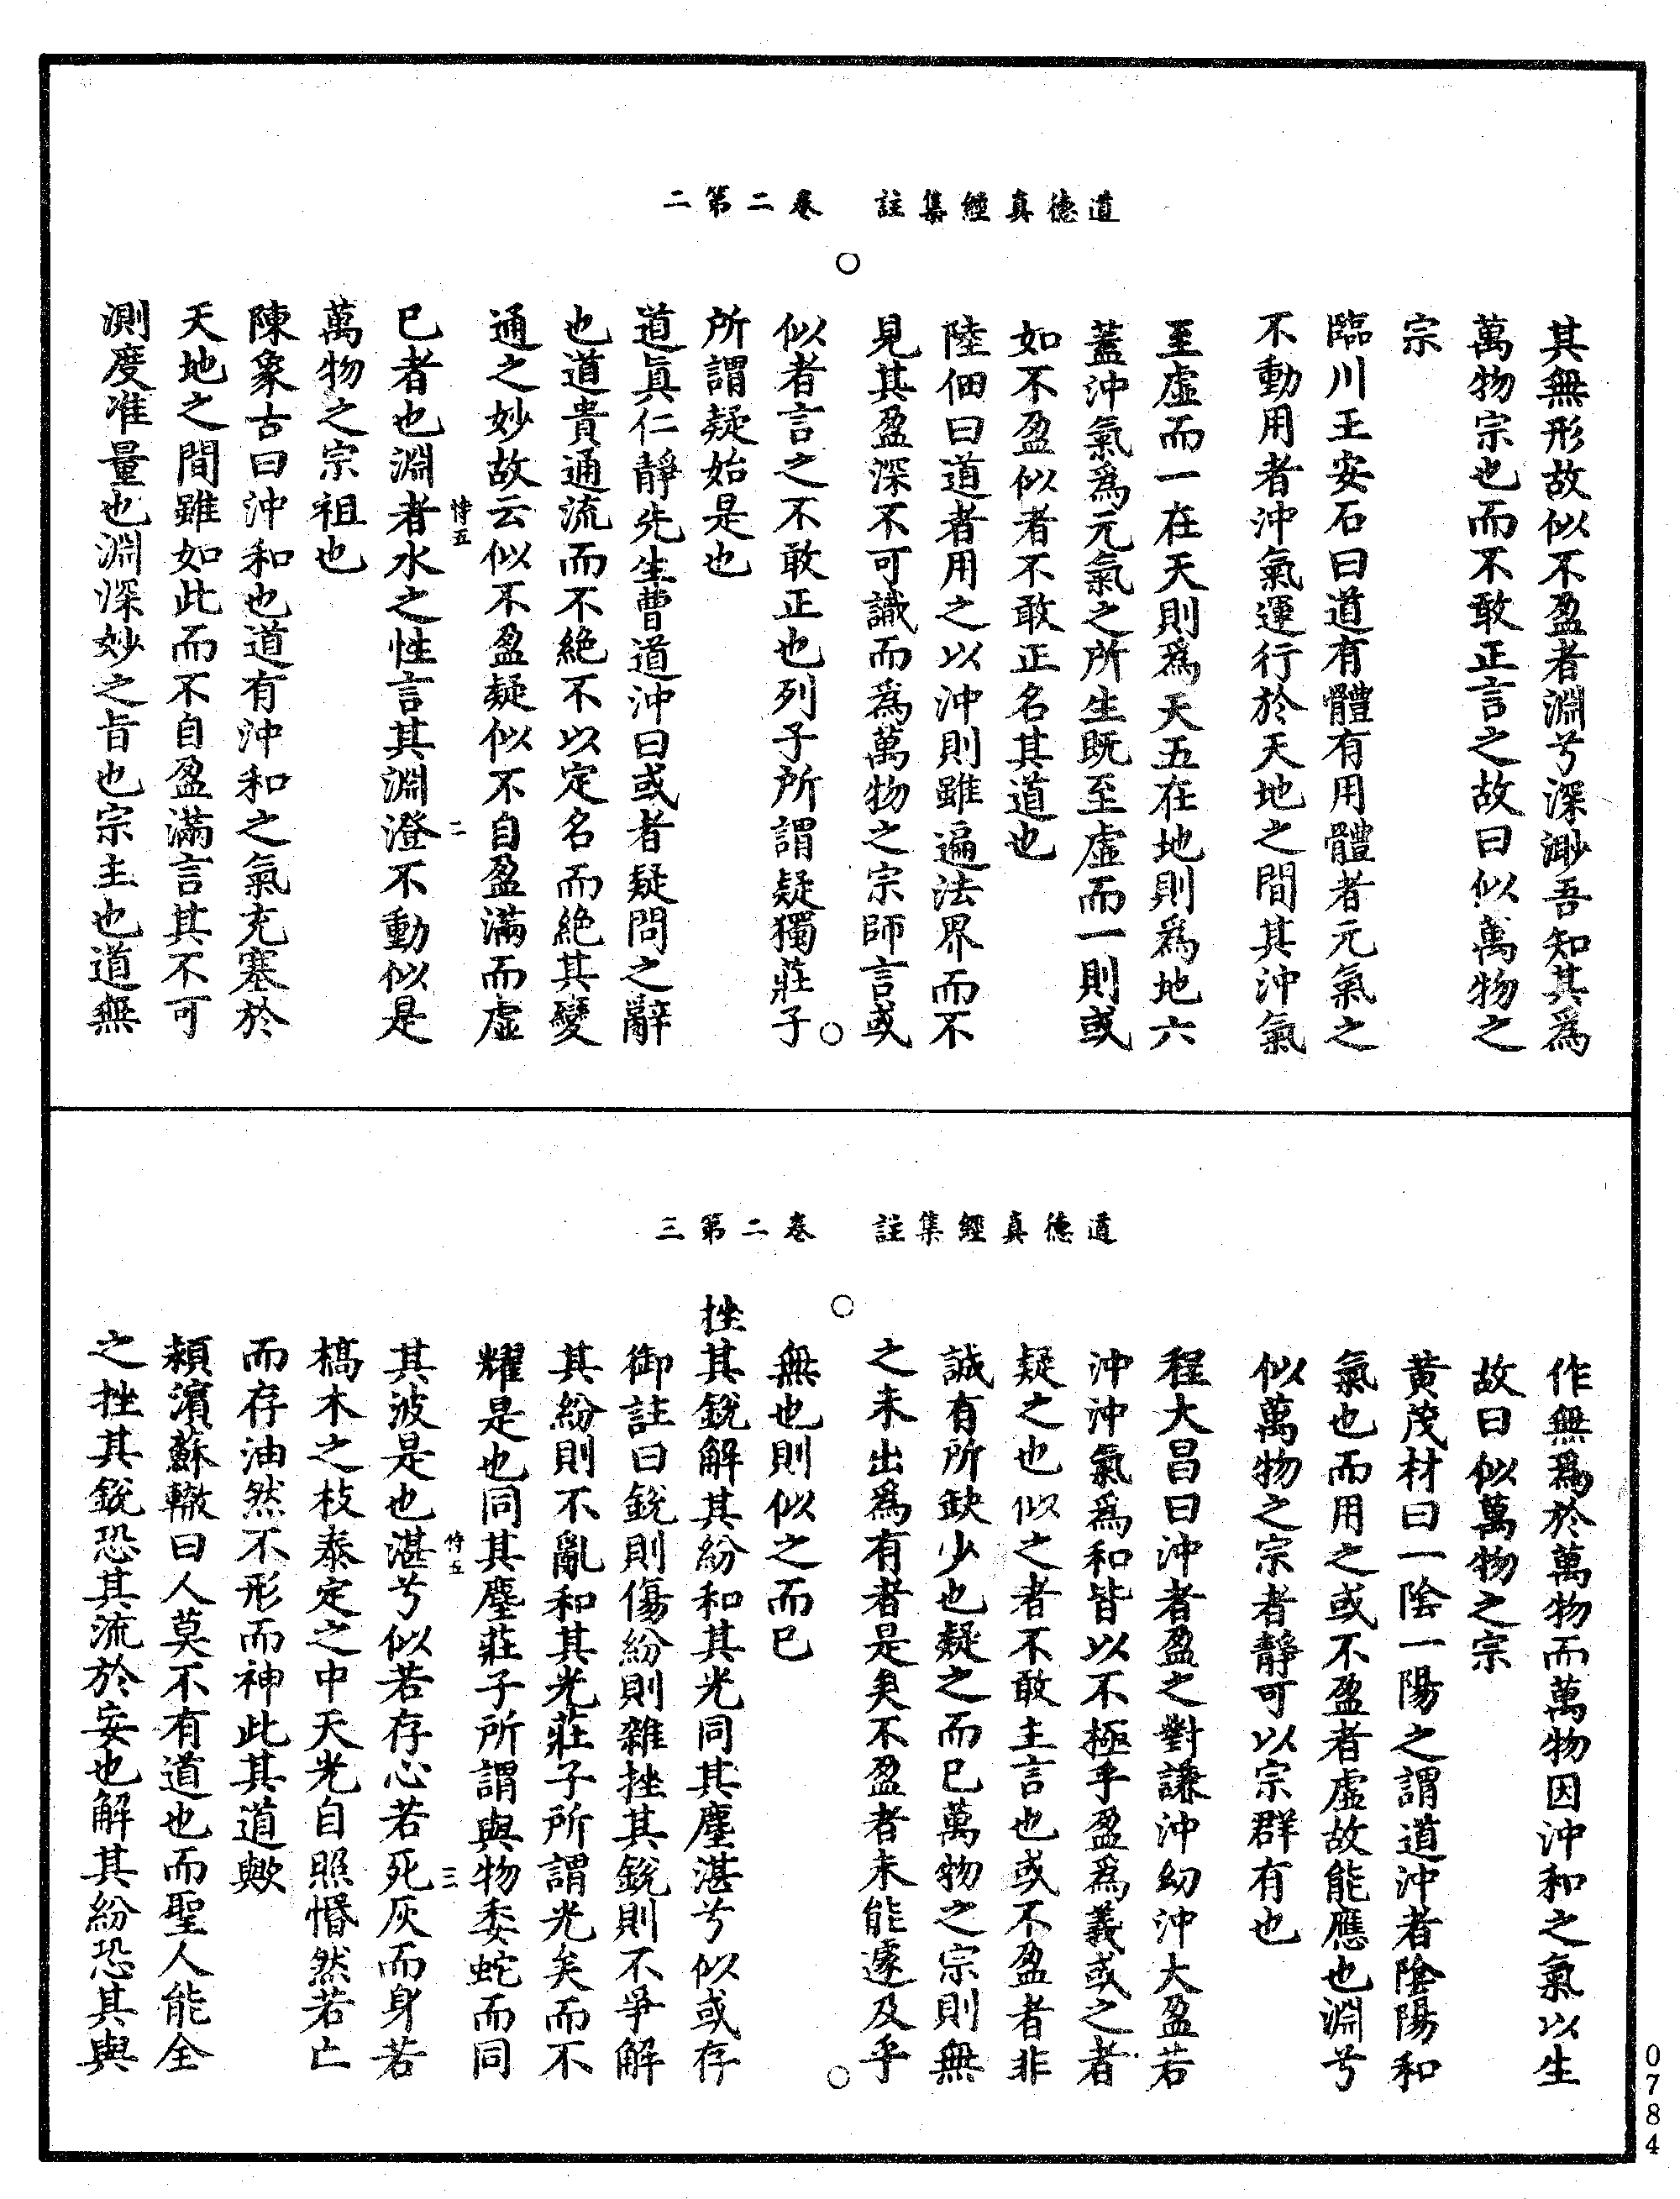 道德真經集註　卷二第二
其無形故似不盈者淵兮深渺吾知其爲
萬物宗也而不敢正言之故曰似萬物之
宗
臨川王安石曰道有體有用體者元氣之
不動用者沖氣運行於天地之間其沖氣
至虛而一在天則爲天五在地則爲地六
蓋沖氣爲元氣之所生既至虛而一則或
如不盈似者不敢正名其道也
陸佃曰道者用之以沖則雖遍法界而不
見其盈深不可識而爲萬物之宗師言或
似者言之不敢正也列子所謂疑獨莊子
所謂疑始是也
道眞仁靜先生曹道沖曰或者疑問之辭
也道貴通流而不絶不以定名而絶其變
通之妙故云似不盈疑似不自盈滿而虛
已者也淵者水之性言其淵澄不動似是
萬物之宗祖也
陳象古曰沖和也道有沖和之氣充塞於
天地之間雖如此而不自盈滿言其不可
測度准量也淵深妙之旨也宗主也道無
悖五
二
道德真經集註　卷二第三
作無爲於萬物而萬物因沖和之氣以生
故曰似萬物之宗
黃茂材曰一陰一陽之謂道沖者陰陽和
氣也而用之或不盈者虛故能應也淵兮
似萬物之宗者靜可以宗群有也
程大昌曰沖者盈之對謙沖幼沖大盈若
沖沖氣爲和皆以不極乎盈爲義或之者
疑之也似之者不敢主言也或不盈者非
誠有所缺少也疑之而已萬物之宗則無
之未出爲有者是矣不盈者未能遽及乎
無也則似之而已
挫其銳解其紛和其光同其塵湛兮似或存
御註曰銳則傷紛則雜挫其銳則不爭解
其紛則不亂和其光莊子所謂光矣而不
耀是也同其塵莊子所謂與物委蛇而同
其波是也湛兮似若存心若死灰而身若
槁木之枝泰定之中天光自照惛然若亡
而存油然不形而神此其道歟
潁濱蘇轍曰人莫不有道也而聖人能全
之挫其銳恐其流於妄也解其紛恐其與
悖五
三
0784